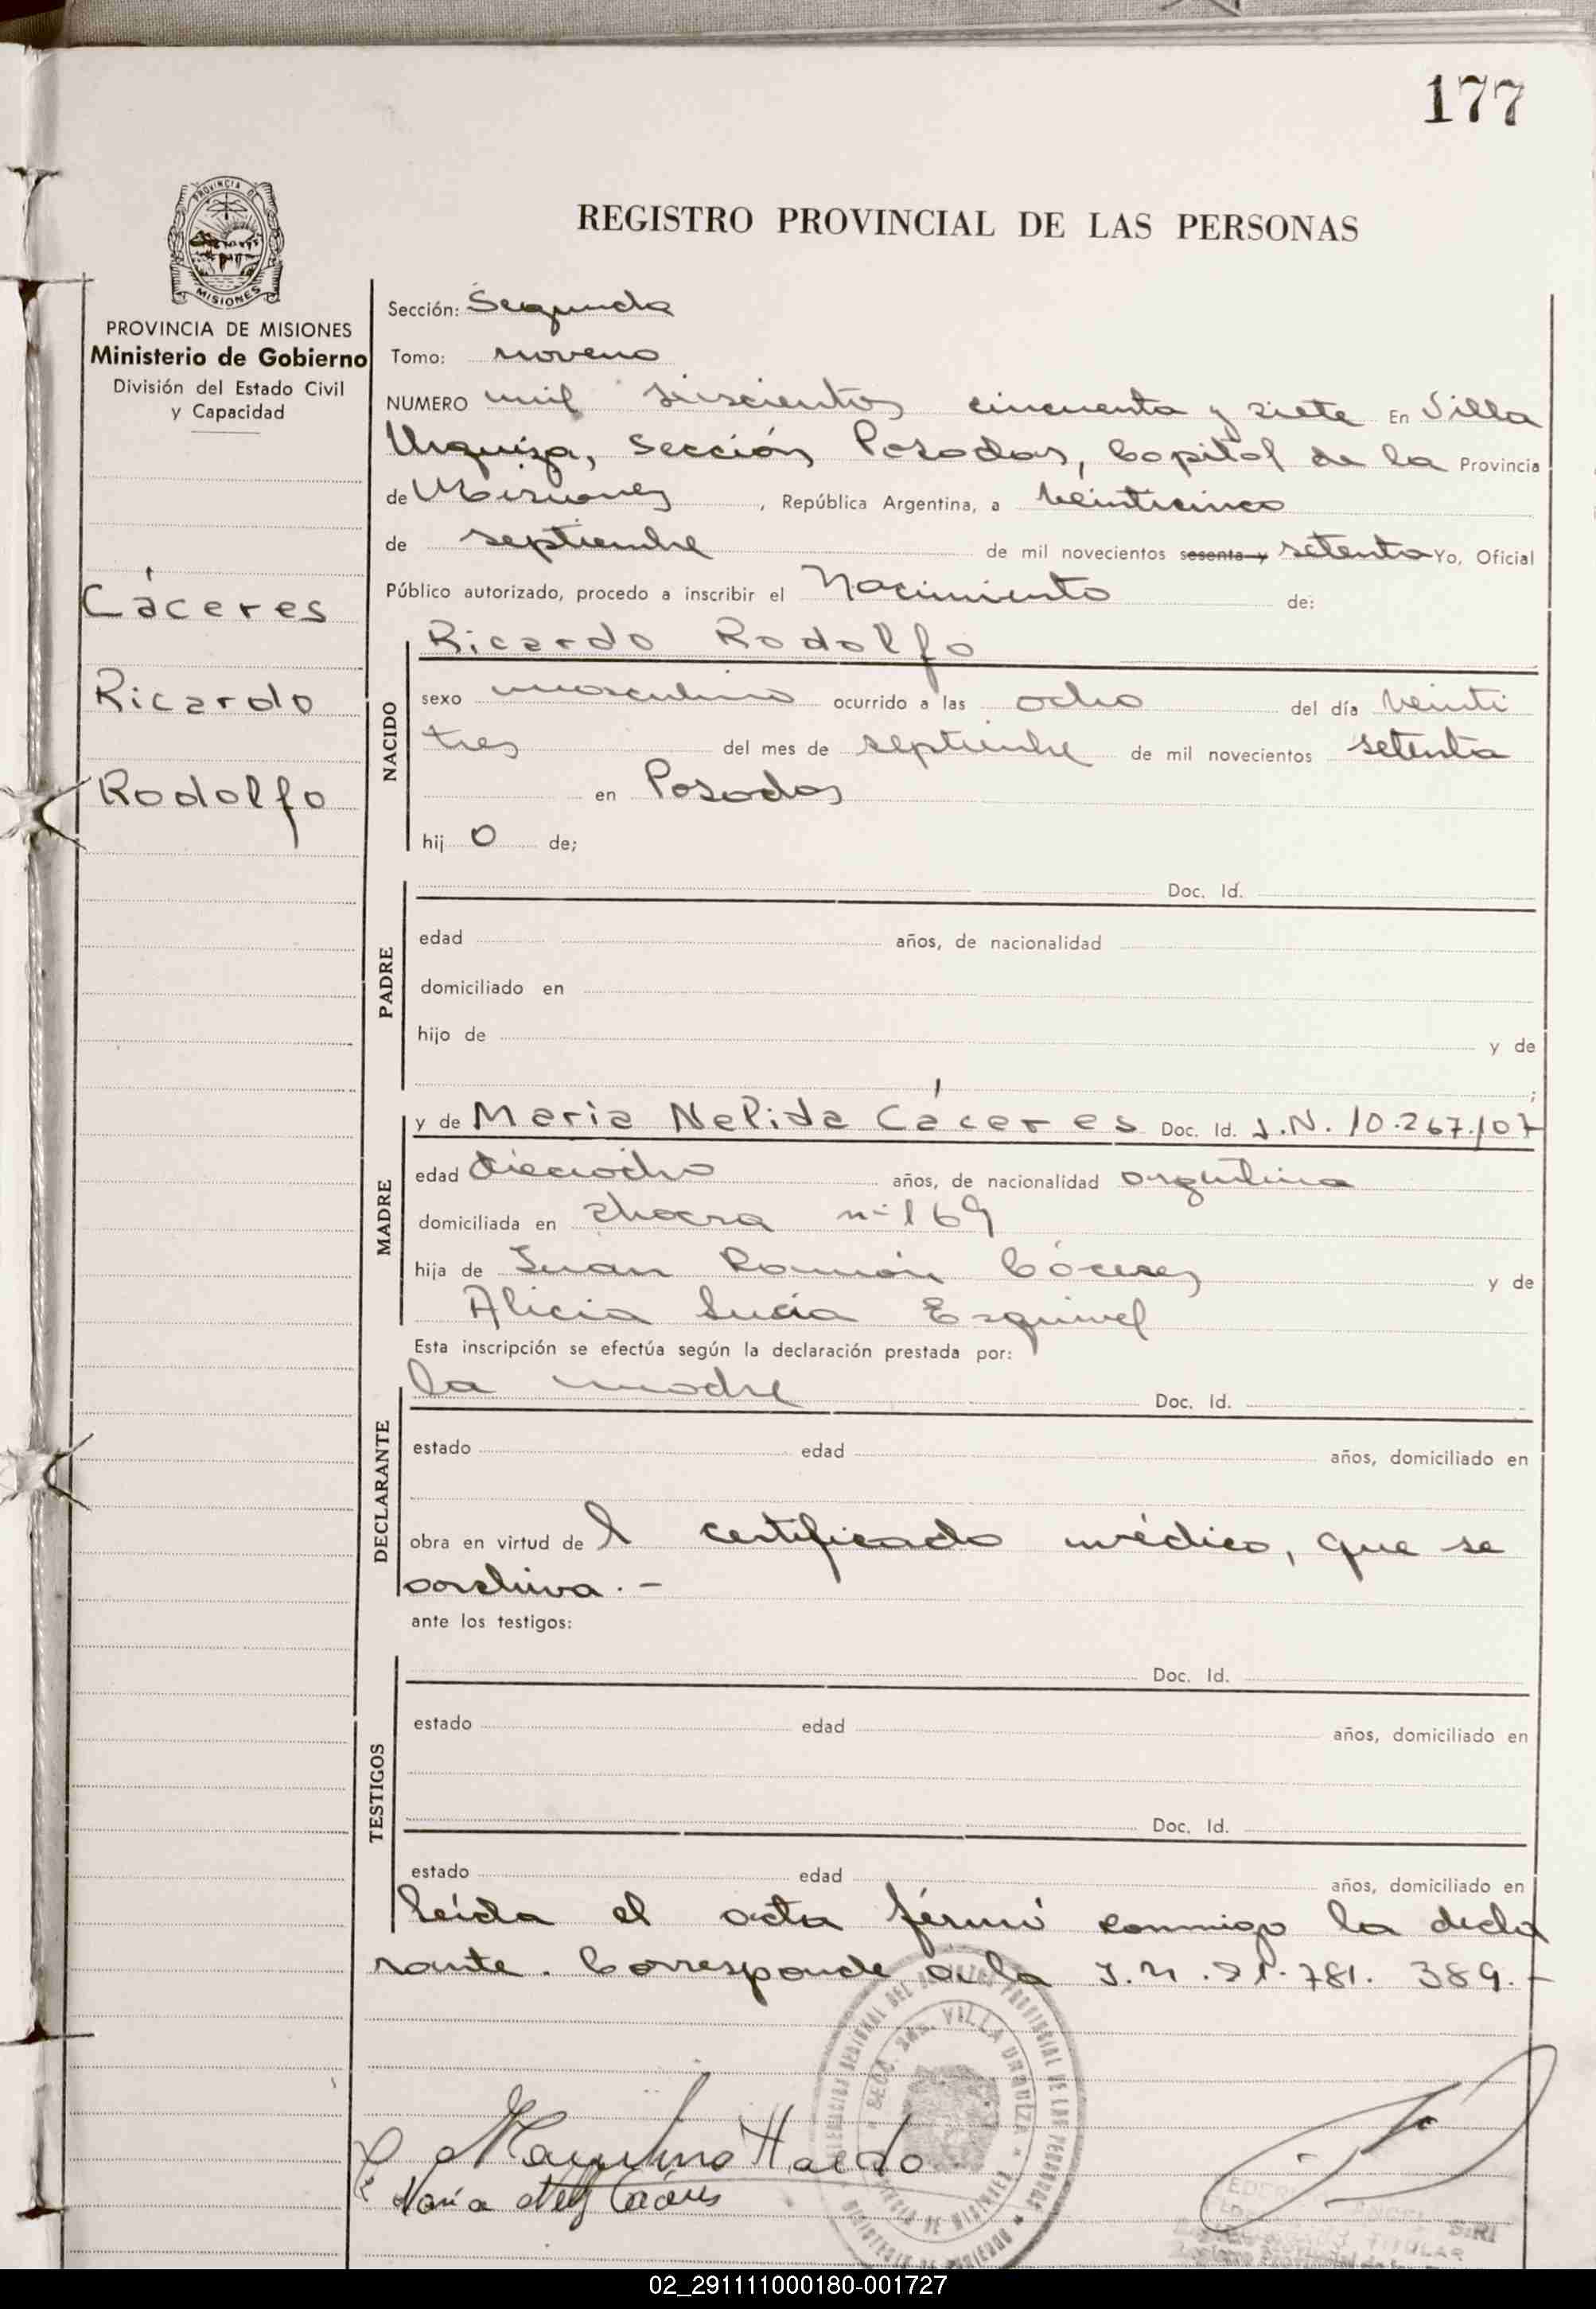 177
PROVINCIA DE
MISIONES
PROVINCIA DE MISIONES
Ministerio de Gobierno
División del Estado Civil
y Capacidad
Cáceres
Ricardo
Rodolfo
REGISTRO PROVINCIAL DE LAS PERSONAS
Sección: Segunda
Tomo: noveno
NUMERO mil seiscientos cincuenta y siete En Villa
Urquiza, Sección Posadas, Capital de la Provincia
de Misiones, República Argentina, a veinticinco
de septiembre de mil novecientos sesenta y setenta Yo, Oficial
Público autorizado, procedo a inscribir el Nacimiento de:
NACIDO
Ricardo Rodolfo
sexo masculino ocurrido a las ocho del día veinti
tres del mes de septiembre de mil novecientos setenta
en Posadas
hij o de;
PADRE
Doc. Id.
edad años, de nacionalidad
domiciliado en
hijo de y de
;
MADRE
y de Maria Nelida Cáceres Doc. Id. I.N. 10.267.107
edad dieciocho años, de nacionalidad argentina
domiciliada en chacra nº 169
hija de Juan Ramón Cáceres y de
Alicia Lucía Esquivel
Esta inscripción se efectúa según la declaración prestada por:
DECLARANTE
la madre Doc. Id.
estado edad años, domiciliado en
obra en virtud de l certificado médico, que se
archiva.-
ante los testigos:
TESTIGOS
Doc. Id.
estado edad años, domiciliado en
Doc. Id.
estado edad años, domiciliado en
Leída el acta firmó conmigo la decla
rante. Corresponde a la I.N. 21.781.389.-
SECC. VILLA URQUIZA
María Nely Cáceres
ANGEL SIRI
TITULAR
02_291111000180-001727